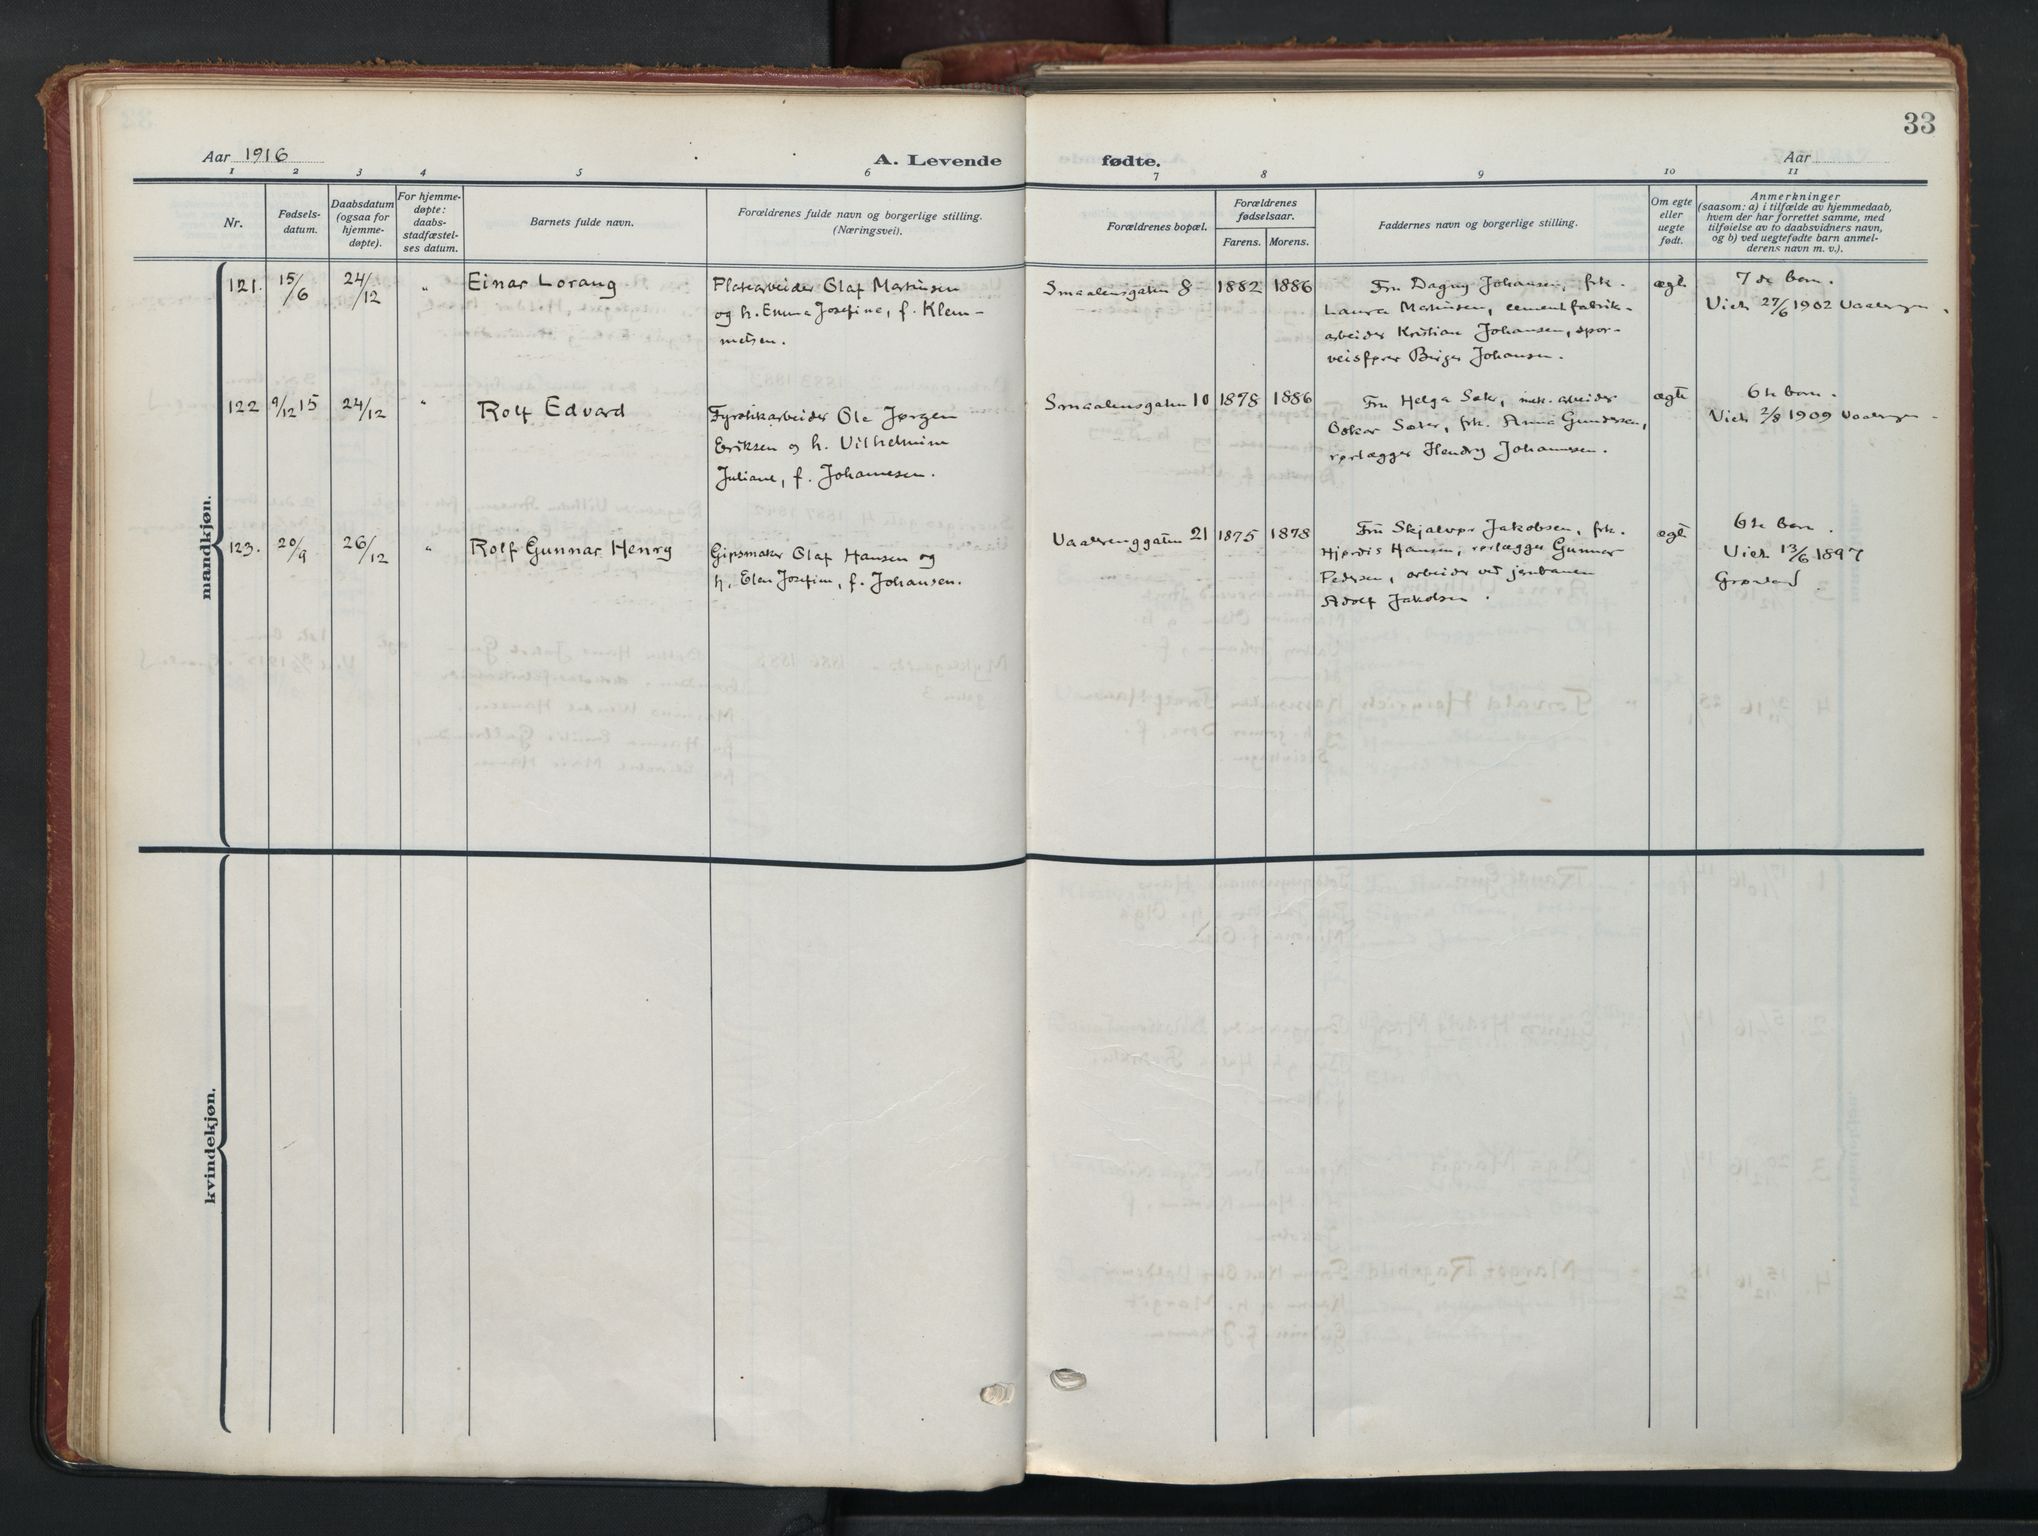 33
Aar 1916
A. Levende fødte.
Aar
1 2 3 4 5 6 7 8 9 10 11
Nr.
Fødsels-
datum.
Daabsdatum
(ogsaa for
hjemme-
døpte).
For hjemme-
døpte:
daabs-
stadfæstel-
ses datum.
Barnets fulde navn.
Forældrenes fulde navn og borgerlige stilling.
(Næringsvei).
Forældrenes bopæl.
Forældrenes
fødselsaar.
Farens. Morens.
Faddernes navn og borgerlige stilling.
Om egte
eller
uegte
født.
Anmerkninger
(saasom: a) i tilfælde av hjemmedaab,
hvem der har forrettet samme, med
tilføielse av to daabsvidners navn,
og b) ved uegtefødte barn anmel-
derens navn m. v.).
mandkjøn.
121. 15/6 24/12 " Einar Lorang
Platearbeider Olaf Martinsen
og h. Emma Josefine, f. Klem-
metsen.
Smaalensgaten 8 1882 1886
Fru Dagny Johansen, frk.
Laura Martinsen, cementfabrik-
arbeider Kristian Johansen, spor-
veisfører Birger Johansen.
ægte
7de barn.
Viet 27/6 1902 Vaalerengen.
122 9/12 15 24/12 " Rolf Edvard
Fyrstikarbeider Ole Jørgen
Eriksen og h. Vilhelmine
Juliane, f. Johannesen.
Smaalensgaten 10 1878 1886
Fru Helga Sæter, mek. arbeider
Oskar Sæter, frk. Anna Gundersen,
rørlægger Hendry Johannesen.
ægte
6te barn.
Viet 2/8 1909 Vaalerengen.
123. 20/9 26/12 " Rolf Gunnar Henry
Gipsmaker Olaf Hansen og
h. Elen Josefine, f. Johansen.
Vaalerenggaten 21 1875 1878
Fru Skjalvør Jakobsen, frk.
Hjørdis Hansen, rørlægger Gunnar
Pedersen, arbeider ved jernbanen
Adolf Jakobsen.
ægte
6te barn.
Viet 13/6 1897
Grønland
kvindekjøn.